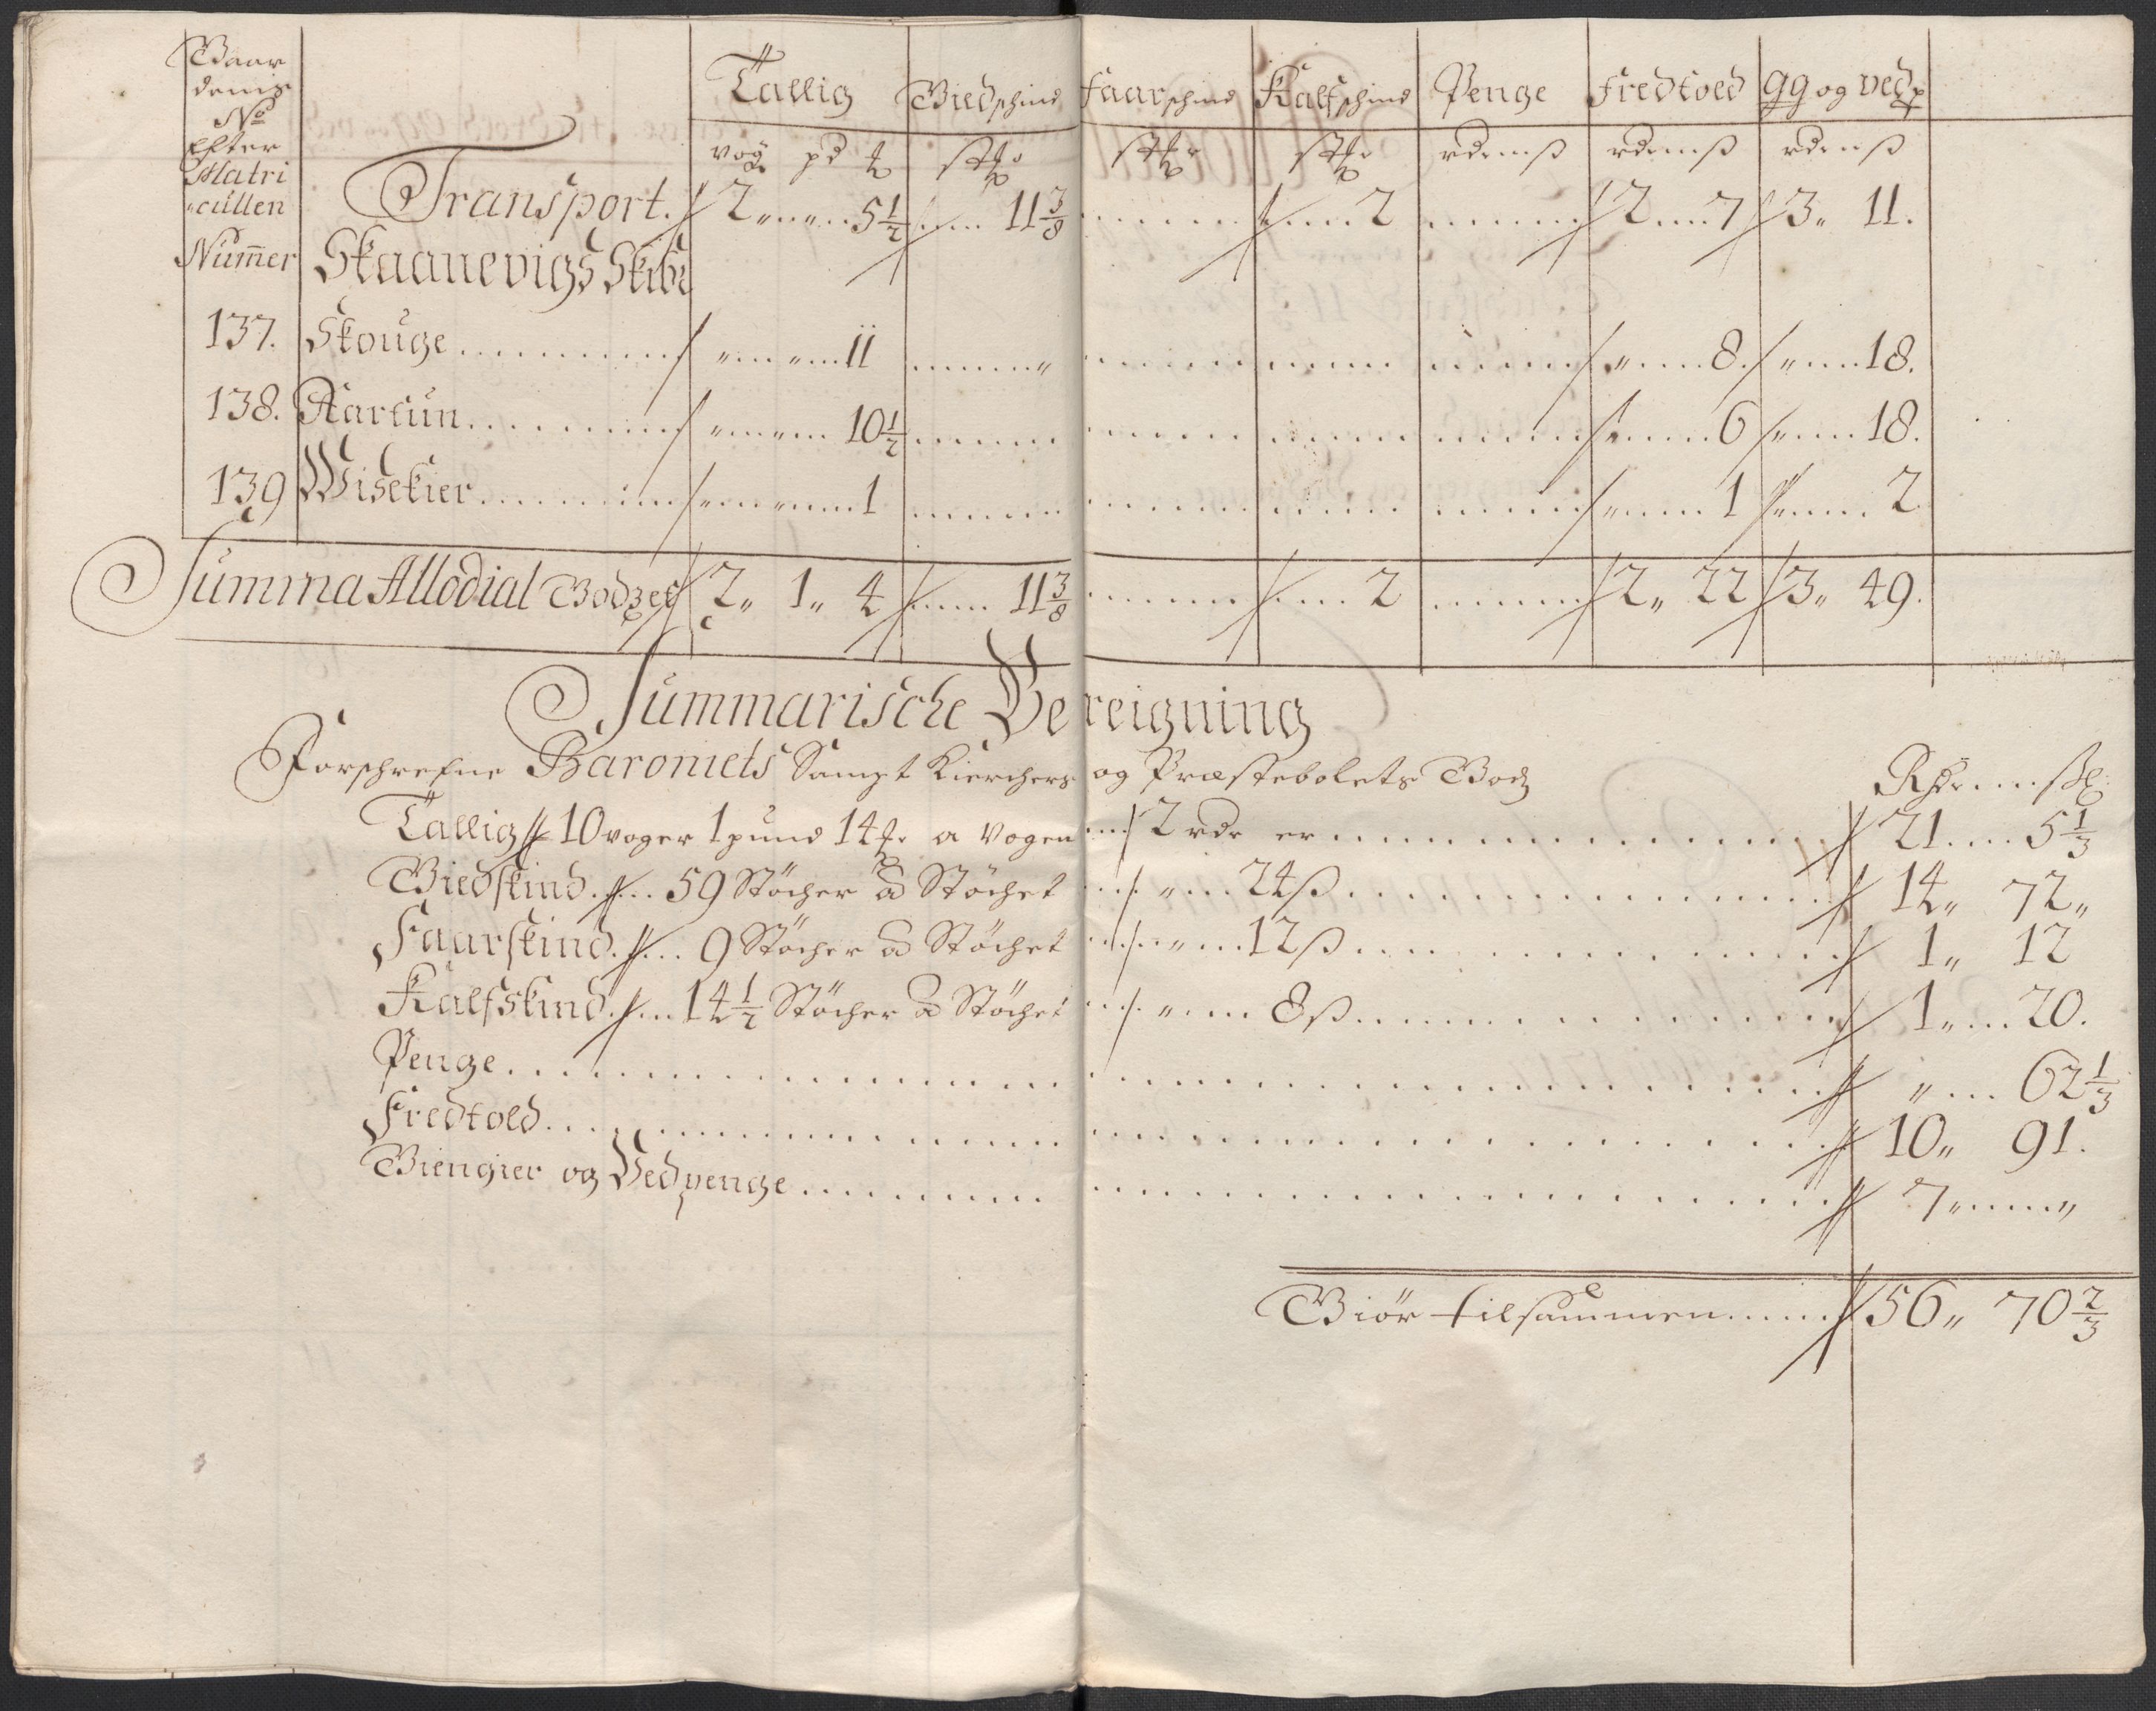 Gaar
denis
No
Efter
Matri
cüllen
Num̅er
Tallig Giedschind Faarschind Kalfschind Penge Fredtold gg og vedp
vog pd ℔ stkr stkr stkr rdr ß rdr ß rdr ß
Transport. 2 „ 5½ 11⅜ 2 2 7 3„ 11.
Skaanevigs Skibr
137. Skouge 11 „ 8. „ 18.
138. Aartun 10½ 6 18.
139 Misekier 1 1 2
Summa Allodial Godzet 2„ 1„ 4 11⅜ 2 2„ 22 3„ 49.
Summarische Bereigning
Forschrefne Baroniets Sampt Kierchers og Præstebolets Godz Rdr ß
Tallig 10 voger 1 pund 14 ℔r a Vogen 2 rdr er 21 5⅓
Giedskind 59 Støcher a Støchet „ 24 ß 14„ 72„
Faarskind 9 Støcher a Støchet „ 12 ß 1„ 12
Kalfskind 14½ Støcher a Støchet „ 8 ß 1„ 20.
Penge „ 62⅓
Fredtold 10„ 91.
Giengier og Vedpenge 7„ „
Giör tilsammen 56„ 70⅔